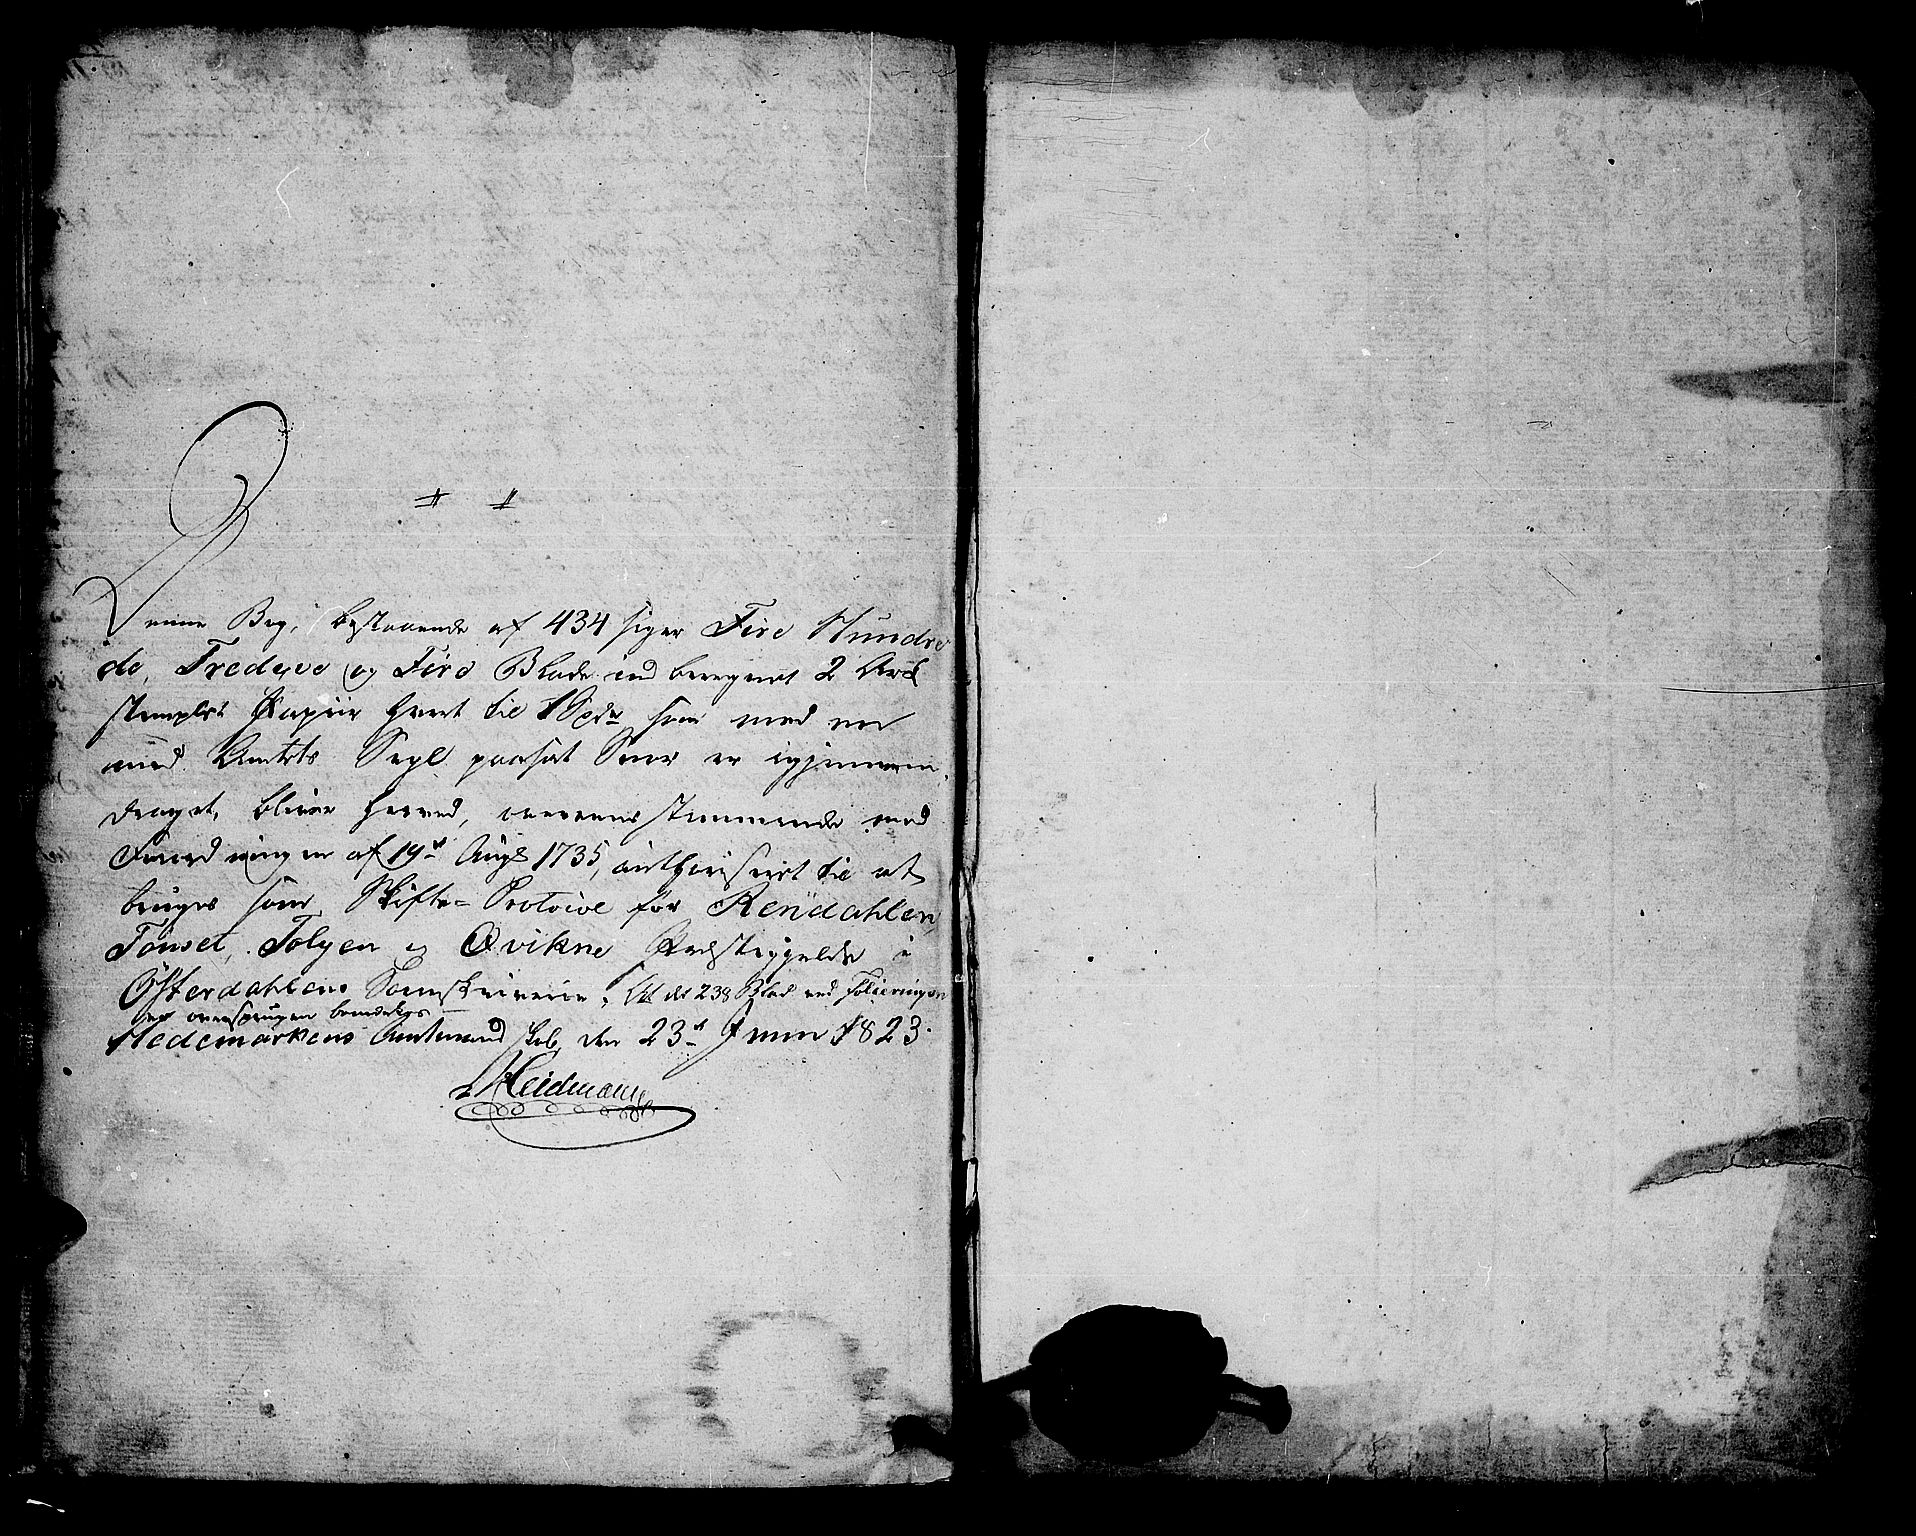 Denne Bog, bestaaende af 434 siger Fire Hundre
de, Tredeve og Fire Blade indberegnet 2 Ark
stemplet Papiir hvert til 1 Spdr som med en
med Amtets Segl paasat Snor er igjennem
draget, bliver herved, overeensstemmende med
Forordningen af 19de Augt 1735, authoriseret til at
bruges som Skifte-Protocol for Rendahlen,
Tönset, Tolgen og Qvikne Præstegjelde i
Österdahlens Sorenskriverie. At det 238 Blad ved Folieringen
er oversprungen bemærkes
Hedemarkens Amtmandskab den 23de Juni 1823.
Heidmann